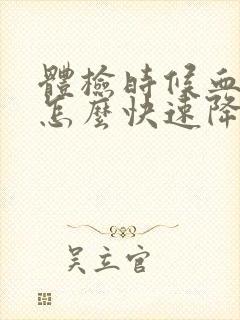 體檢時候血
怎麼快速降
吴立官